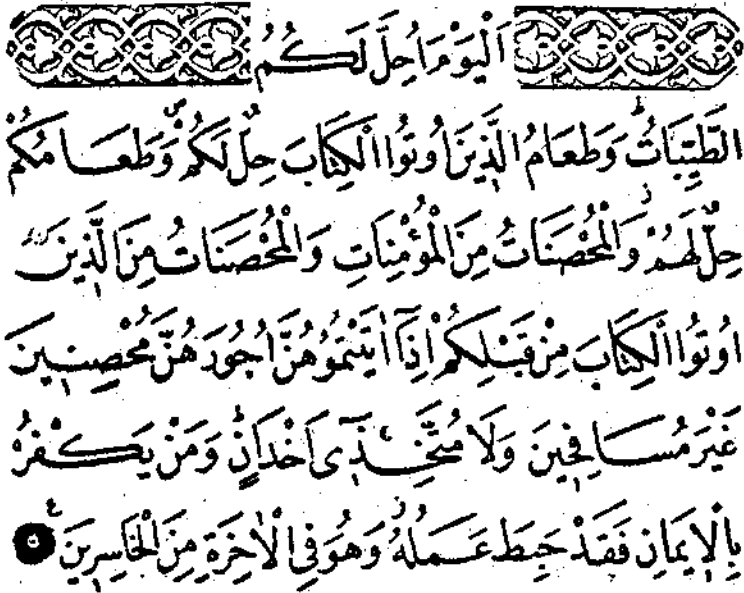 اَلْيَوْمَ اُحِلَّ لَكُمُ
الطَّيِّبَاتُۜ وَطَعَامُ الَّذِينَ اُوتُوا الْكِتَابَ حِلٌّ لَكُمْۖ وَطَعَامُكُمْ
حِلٌّ لَهُمْۘ وَالْمُحْصَنَاتُ مِنَ الْمُؤْمِنَاتِ وَالْمُحْصَنَاتُ مِنَ الَّذِينَ
اُوتُوا الْكِتَابَ مِنْ قَبْلِكُمْ اِذَٓا اٰتَيْتُمُوهُنَّ اُجُورَهُنَّ مُحْصِنِينَ
غَيْرَ مُسَافِحِينَ وَلَا مُتَّخِذِٓي اَخْدَانٍۜ وَمَنْ يَكْفُرْ
بِالْاِيمَانِ فَقَدْ حَبِطَ عَمَلُهُۘ وَهُوَ فِي الْاٰخِرَةِ مِنَ الْخَاسِرِينَ ع ٥